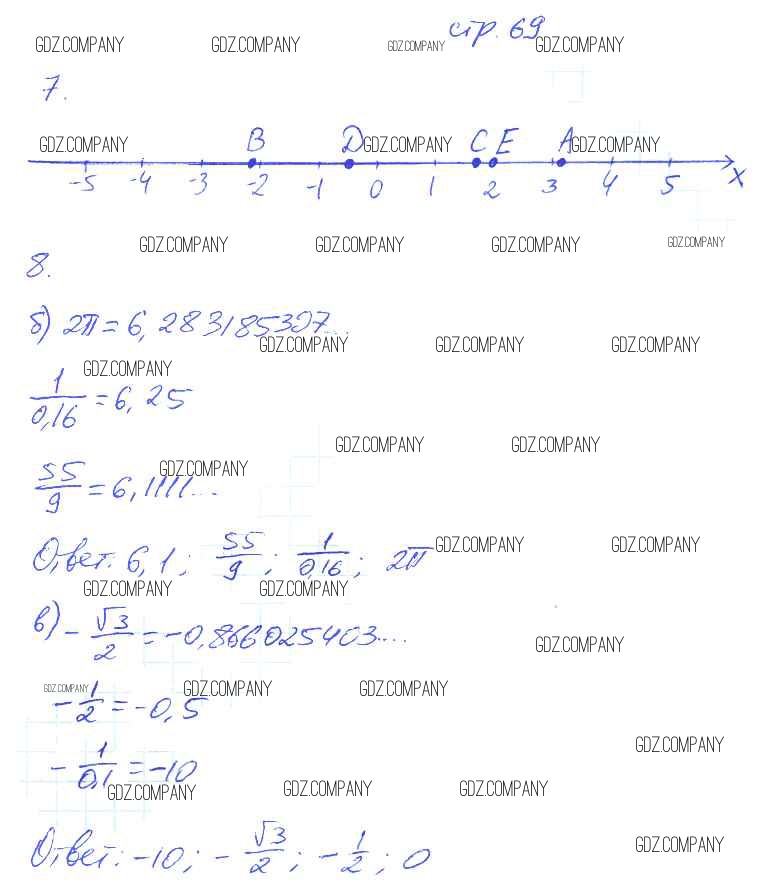 стр. 69
GDZ.COMPANY GDZ.COMPANY GDZ.COMPANY GDZ.COMPANY
7.
GDZ.COMPANY B D GDZ.COMPANY C E A GDZ.COMPANY
-5 -4 -3 -2 -1 0 1 2 3 4 5 x
GDZ.COMPANY GDZ.COMPANY GDZ.COMPANY GDZ.COMPANY
8.
б) 2π = 6,283185307...
GDZ.COMPANY GDZ.COMPANY GDZ.COMPANY
GDZ.COMPANY
1/0,16 = 6,25
GDZ.COMPANY GDZ.COMPANY
GDZ.COMPANY
55/9 = 6,1111...
GDZ.COMPANY GDZ.COMPANY
Ответ: 6,1; 55/9; 1/0,16; 2π
GDZ.COMPANY GDZ.COMPANY
в) -√3/2 = -0,866025403...
GDZ.COMPANY
GDZ.COMPANY GDZ.COMPANY GDZ.COMPANY
-1/2 = -0,5
GDZ.COMPANY
-1/0,1 = -10
GDZ.COMPANY GDZ.COMPANY GDZ.COMPANY
Ответ: -10; -√3/2; -1/2; 0
GDZ.COMPANY